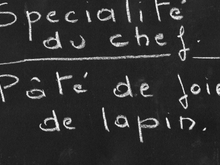 Spécialité
du chef.
Pâté de foie
de lapin.